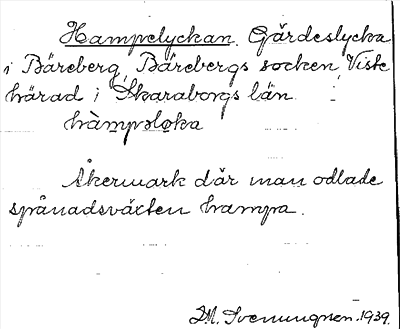 Hampelyckan. Gärdeslycka
i Bäreberg, Bärebergs socken, Viste
härad i Skaraborgs län.
hàmpəlọka
Åkermark där man odlade
spånadsväxten hampa.
M. Svenungsen. 1939.